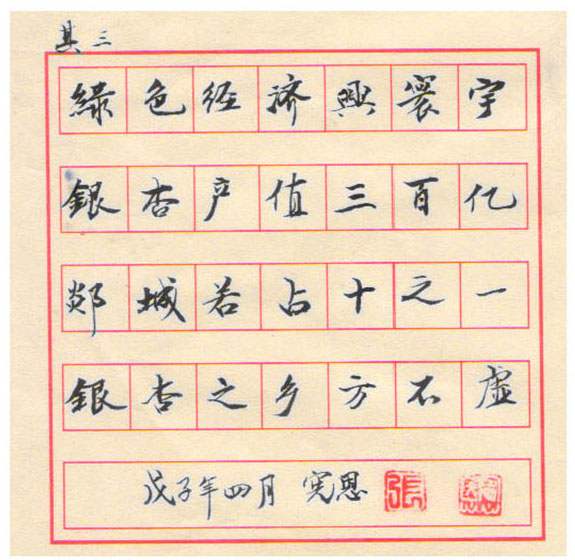 其三
綠色经济興寰宇
銀杏产值三百亿
郯城若占十之一
銀杏之乡方不虚
戊子年四月 宪恩 張